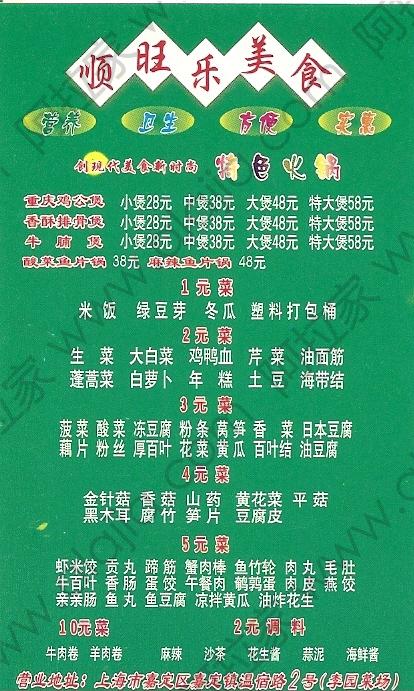 顺旺乐美食
营养 卫生 方便 实惠
创现代美食新时尚 特色火锅
重庆鸡公煲 小煲28元 中煲38元 大煲48元 特大煲58元
香酥排骨煲 小煲28元 中煲38元 大煲48元 特大煲58元
牛腩煲 小煲28元 中煲38元 大煲48元 特大煲58元
酸菜鱼片锅 38元 麻辣鱼片锅 48元
1元菜
米饭 绿豆芽 冬瓜 塑料打包桶
2元菜
生菜 大白菜 鸡鸭血 芹菜 油面筋
蓬蒿菜 白萝卜 年糕 土豆 海带结
3元菜
菠菜 酸菜 冻豆腐 粉条 莴笋 香菜 日本豆腐
藕片 粉丝 厚百叶 花菜 黄瓜 百叶结 油豆腐
4元菜
金针菇 香菇 山药 黄花菜 平菇
黑木耳 腐竹 笋片 豆腐皮
5元菜
虾米饺 贡丸 蹄筋 蟹肉棒 鱼竹轮 肉丸 毛肚
牛百叶 香肠 蛋饺 午餐肉 鹌鹑蛋 肉皮 燕饺
亲亲肠 鱼丸 鱼豆腐 凉拌黄瓜 油炸花生
10元菜 2元调料
牛肉卷 羊肉卷 麻辣 沙茶 花生酱 蒜泥 海鲜酱
营业地址：上海市嘉定区嘉定镇温宿路2号(李园菜场)